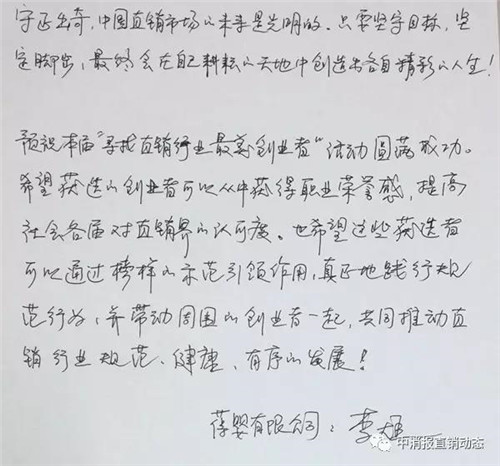 守正出奇，中国直销市场的未来是光明的。只要坚守目标，坚
定脚步，最终会在自己耕耘的天地中创造出各自精彩的人生！
预祝本届“寻找直销行业最美创业者”活动圆满成功。
希望获选的创业者可以从中获得职业荣誉感，提高
社会各届对直销界的认可度。也希望这些获选者
可以通过榜样的示范引领作用，真正地践行规
范行为，并带动周围的创业者一起，共同推动直
销行业规范、健康、有序的发展！
葆婴有限公司：李
中消报直销动态